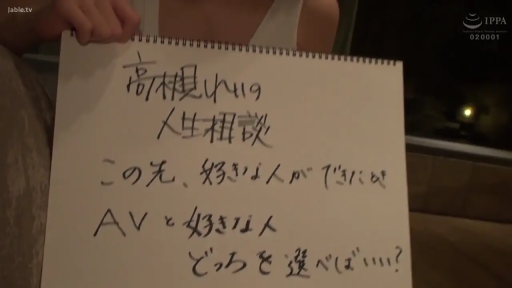 Jable.tv
IPPA
020001
高槻れいの
人生相談
この先、好きな人ができたとき
AVと好きな人
どっちを選べばいい?